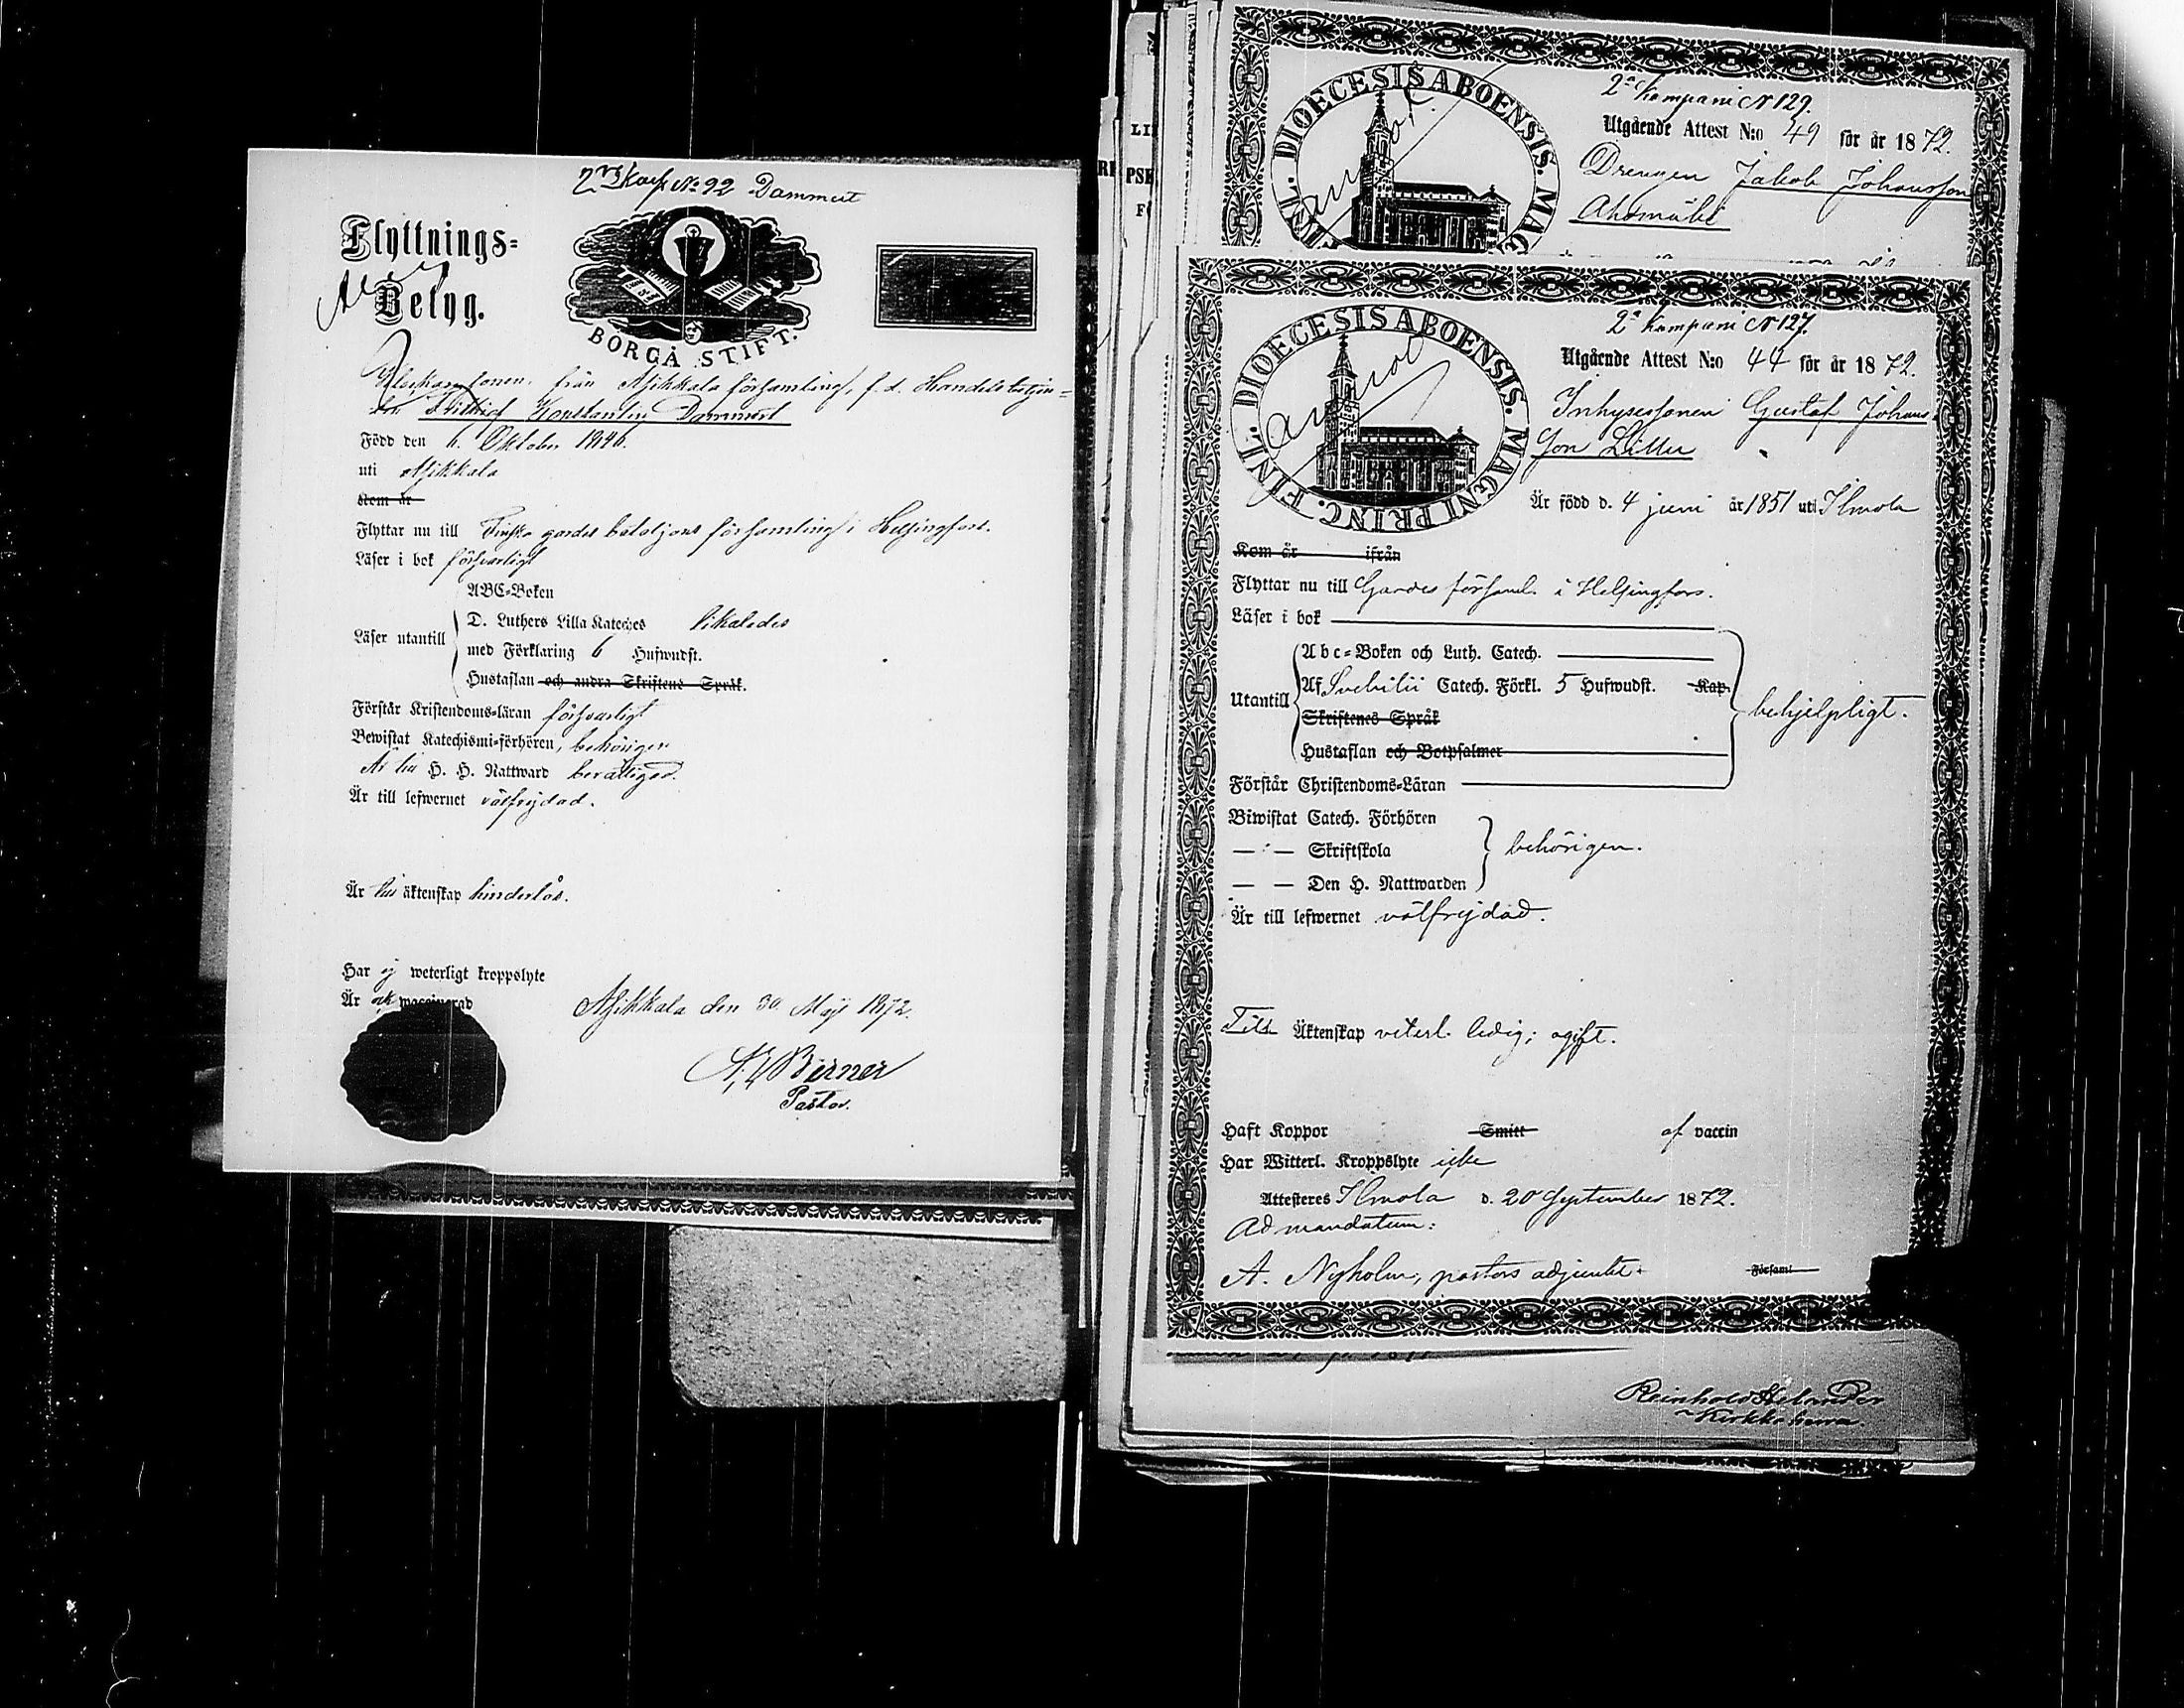 2ra Komp No 92 Dammert
Flyttnings=
Betyg.
BORGÅ STIFT.
från Asikkala församling, f. d. Handelsbetjen=
ten Konstantin Dammert
Född den 6. Oktober 1846.
uti Asikkala
Kom år
Flyttar nu till Finska gardes bataljons församling i Helsingfors.
Läser i bok försvarligt
ABC-Boken
Läser utantill
D. Luthers Lilla Kateches likaledes
med Förklaring 6 Hufwudst.
Hustaflan och andra Skriftens Språk.
Förstår Kristendoms-läran försvarligt
Bewistat Katechismi-förhören, behörigen
Är till H. H. Nattward berättigad.
Är till lefwernet välfrejdad.
Är till äktenskap hinderlös.
Har ej weterligt kroppslyte
Är waccinerad
Asikkala den 30 Maji 1872.
Birner
Pastor.
DIOECESIS ABOENSIS. MAG
FINL.
2a Kompani N 129.
Utgående Attest N:o 49 för år 1872.
Drengen Jakob Johansson
DIOECESIS ABOENSIS. MAGNI PRINC. FINL.
2a Kompani N 127.
Utgående Attest N:o 44 för år 1872.
Inhysessonen Gustaf Johans
son Liller
Är född d. 4 juni år 1851 uti Ilmola
Kom år ifrån
Flyttar nu till Gardes församl. i Helsingfors.
Läser i bok
Utantill
Abc-Boken och Luth. Catech.
Af Svebilii Catech. Förkl. 5 Hufwudst. Kap.
Skriftenes Språk
Hustaflan och Botpsalmer
behjelpligt.
Förstår Christendoms-Läran
Biwistat Catech. Förhören
— " — Skriftskola
— — Den H. Nattwarden
behörigen.
Är till lefwernet välfrejdad.
Till Äktenskap veterl. ledig; ogift.
Haft Koppor Smitt af vaccin
Har Witterl. Kroppslyte icke
Attesteres Ilmola d. 20 September 1872.
Ad mandatum:
A. Nyholm, pastors adjunkt.
Församl
Reinhold Helander
Kirkkoherra.